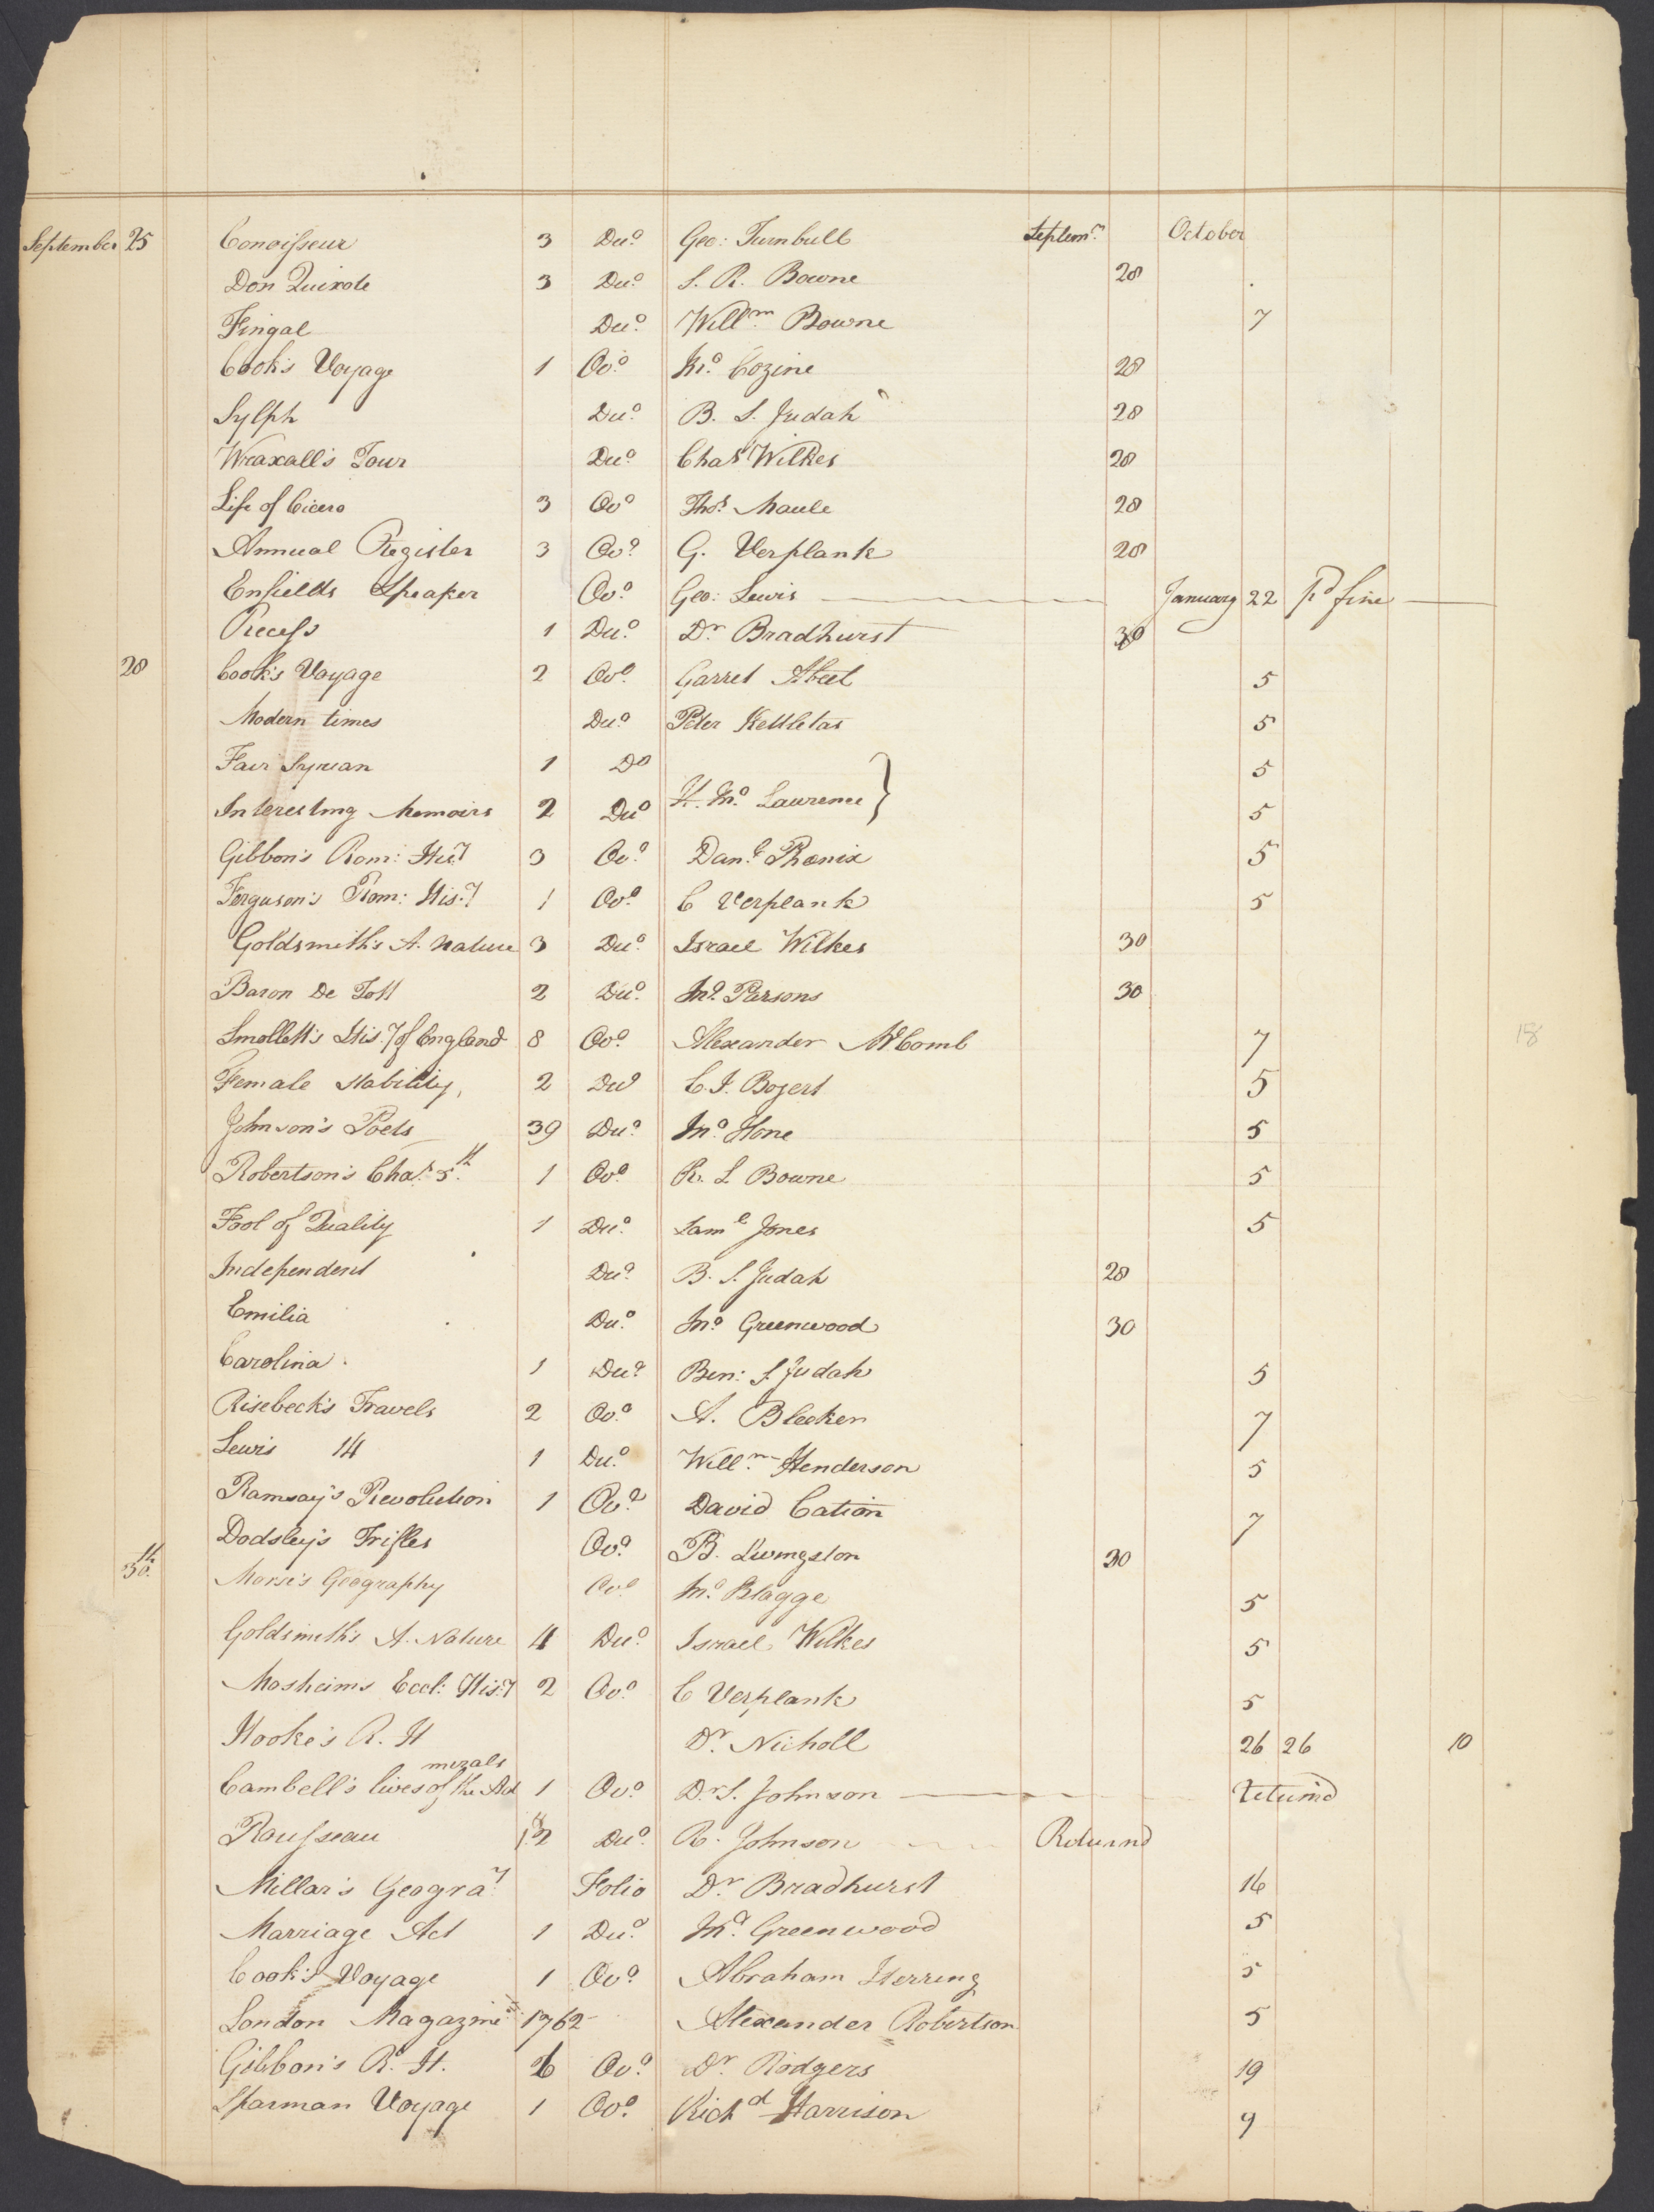 September 25 Conoisseur 3 Duo. Geo: Turnbull Septemr. October
Don Quixote 3 Duo. S. R. Bowne 28
Fingal Duo. Willm. Bowne 7
Cook's Voyage 1 Ovo. Jno. Cozine 28
Sylph Duo. B. S. Judah 28
Wraxall's Tour Duo. Chas Wilkes 28
Life of Cicero 3 Ovo Thos. Maule 28
Annual Register 3 Ovo. G. Verplank 28
Enfields Speaker Ovo. Geo: Lewis January 22 Pd fine
Recess 1 Duo. Dr. Bradhurst 30
28 Cook's Voyage 2 Ovo. Garret Abeel 5
Modern times Duo. Peter Kettletas 5
Fair Syrian 1 Do 5
Interesting Memoirs 2 Duo Jno. Lawrence } 5
Gibbon's Rom: Hisy 3 Ovo. Danl. Phoenix 5
Ferguson's Rom: Hisy. 1 Ovo. C Verplank 5
Goldsmith's A. Nature 3 Duo. Israel Wilkes 30
Baron De Tott 2 Duo. Jno. Parsons 30
Smollett's Hisy. of England 8 Ovo. Alexander McComb 7 18
Female Stability, 2 Duo C. I. Bogert 5
Johnson's Poets 39 Duo. Jno. Hone 5
Robertson's Chas. 5th. 1 Ovo. R. L Bowne 5
Fool of Quality 1 Duo. Saml Jones 5
Independent Duo. B. S. Judah 28
Emilia Duo. Jno. Greenwood 30
Carolina. 1 Duo. Ben: S. Judah 5
Risebeck's Travels 2 Ovo. A. Bleeker 7
Lewis 14 1 Duo. Willm. Henderson 5
Ramsay's Revolution 1 Ovo. David Cation 7
Dodsley's Trifles Ovo. B. Livingston 30
30th. Morse's Geography Ovo. Jno. Blagge 5
Goldsmith's A. Nature 4 Duo. Israel Wilkes 5
Mosheims Eccl: Hisy. 2 Ovo. C Verplank 5
Hooke's R. H Dr. Nicholl 26 26 10
mirals
Cambell's lives of the Ad 1 Ovo. Dr. S. Johnson returnd
Rousseau 1.2 Duo. R. Johnson Returnd
Millar's Geogray. Folio Dr. Bradhurst 16
Marriage Act 1 Duo. Jno. Greenwood 5
Cook's Voyage 1 Ovo. Abraham Herring 5
London Magazine 1762 Alexander Robertson 5
Gibbon's R. H. 6 Ovo. Dr. Rodgers 19
Sparman Voyage 1 Ovo. Richd Harrison 9